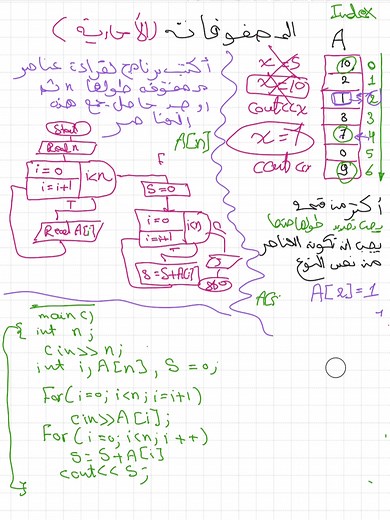 Index
المصفوفات (الأحادية)
A
أكتب برنامج لقراءة عناصر
مصفوفة طولها n ثم
أوجد حاصل جمع هذه
العناصر
x = 5
x = 10
cout<<x
x = 7
cout<<x
10 0
2 1
1 2
8 3
7 4
0 5
9 6
A[n]
Start
Read n
i = 0
i = i+1
i<n
F
T
Read A[i]
S = 0
i = 0
i = i+1
i<n
T
S = S + A[i]
S
أكثر من قيمة
يجب تحديد طولها
يجب أن تكون العناصر
من نفس النوع
A[2] = 1
main()
{ int n;
cin>>n;
int i, A[n], S = 0;
For(i=0; i<n; i=i+1)
cin>>A[i];
For(i=0; i<n; i++)
S = S+A[i]
cout<< S;
}